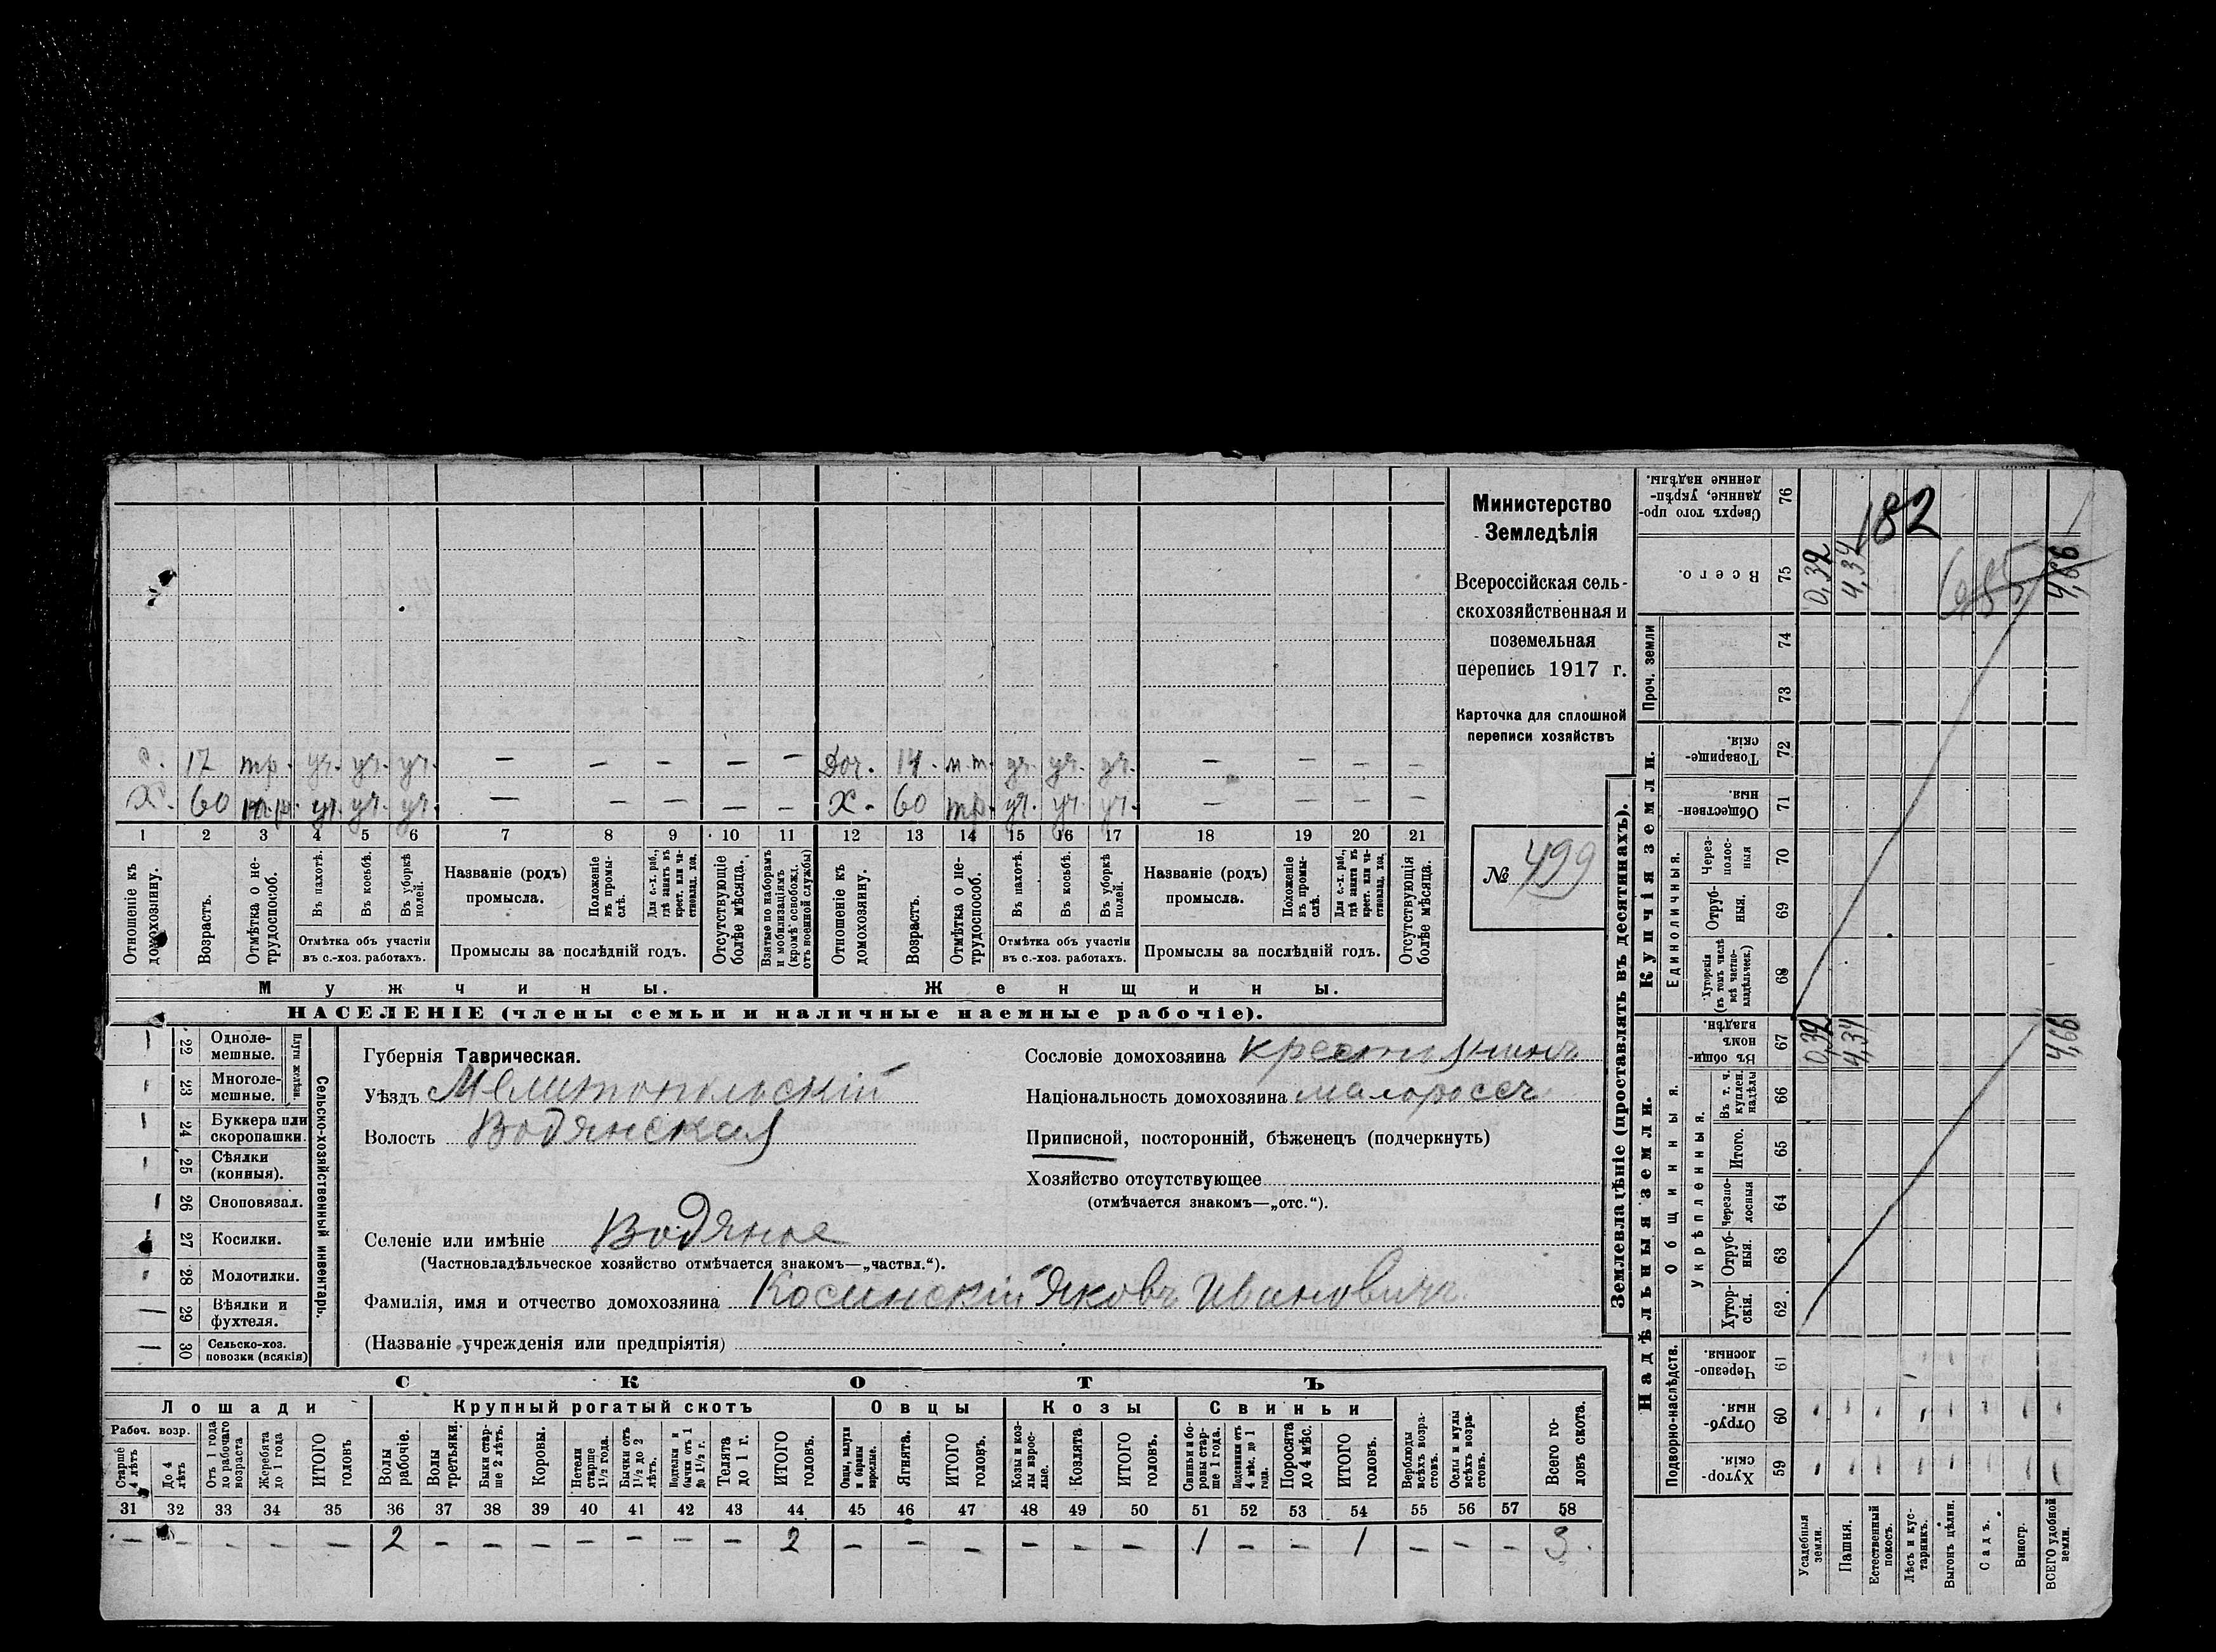 Министерство
Земледѣлія
Всероссійская сель-
скохозяйственная и
поземельная
перепись 1917 г.
Карточка для сплошной
переписи хозяйствъ
№ 499
с. 17 тр. уч. уч. уч. — — — — — Доч. 14 м.т. уч. уч. уч. — — — —
Х. 60 уч. уч. уч. — — — — — Х. 60 тр. уч. уч. уч. — — — —
1 2 3 4 5 6 7 8 9 10 11 12 13 14 15 16 17 18 19 20 21
Отношеніе къ домохозяину.
Возрастъ.
Отмѣтка о не-трудоспособ.
Въ пахотѣ.
Въ косьбѣ.
Въ уборкѣ полей.
Отмѣтка объ участіи
въ с.-хоз. работахъ.
Названіе (родъ)
промысла.
Положеніе въ промы-слѣ.
Для с.-х. раб., гдѣ занятъ въ крест. или ча-стновлад. хоз.
Промыслы за послѣдній годъ.
Отсутствующіе болѣе мѣсяца.
Взятые по наборамъ и мобилизаціямъ (кромѣ освобожд. отъ военной службы)
Отношеніе къ домохозяину.
Возрастъ.
Отмѣтка о не-трудоспособ.
Въ пахотѣ.
Въ косьбѣ.
Въ уборкѣ полей.
Отмѣтка объ участіи
въ с.-хоз. работахъ.
Названіе (родъ)
промысла.
Положеніе въ промы-слѣ.
Для с.-х. раб., гдѣ занята въ крест. или ча-стновлад. хоз.
Промыслы за послѣдній годъ.
Отсутствующія болѣе мѣсяца.
Мужчины. Женщины.
НАСЕЛЕНІЕ (члены семьи и наличные наемные рабочіе).
22 Одноле-мешные.
23 Многоле-мешные.
Плуги желѣзн.
24 Буккера или скоропашки.
25 Сѣялки (конныя).
26 Сноповязал.
27 Косилки.
28 Молотилки.
29 Вѣялки и фухтеля.
30 Сельско-хоз. повозки (всякія)
Сельско-хозяйственный инвентарь.
Губернія Таврическая.
Уѣздъ Мелитопольскій
Волость Водянская
Селеніе или имѣніе Водяное
(Частновладѣльческое хозяйство отмѣчается знакомъ—„частвл.“).
Фамилія, имя и отчество домохозяина Косинскій Яковъ Ивановичъ
(Названіе учрежденія или предпріятія)
Сословіе домохозяина крестьянинъ
Національность домохозяина малороссъ
Приписной, посторонній, бѣженецъ (подчеркнуть)
Хозяйство отсутствующее
(отмѣчается знакомъ—„отс.“).
СКОТЪ
Лошади Крупный рогатый скотъ Овцы Козы Свиньи
Рабоч. возр.
Старше 4 лѣтъ
До 4 лѣтъ
Отъ 1 года до рабочаго возраста
Жеребята до 1 года
ИТОГО головъ
Волы рабочіе.
Волы третьяки.
Быки стар-ше 2 лѣтъ.
Коровы.
Нетели старше 1½ года.
Бычки отъ 1½ до 2 лѣтъ.
Подтелки и бычки отъ 1 до 1½ г.
Телята до 1 г.
ИТОГО головъ.
Овцы, валухи и бараны взрослые.
Ягнята.
ИТОГО головъ.
Козы и коз-лы взрос-лые.
Козлята
ИТОГО головъ.
Свиньи и бо-ровы стар-ше 1 года.
Подсвинки отъ 4 мѣс. до 1 года.
Поросята до 4 мѣс.
ИТОГО головъ.
Верблюды всѣхъ возра-стовъ.
Ослы и мулы всѣхъ возра-стовъ.
Всего го-ловъ скота.
31 32 33 34 35 36 37 38 39 40 41 42 43 44 45 46 47 48 49 50 51 52 53 54 55 56 57 58
— — — — — 2 — — — — — — — 2 — — — — — — 1 — — 1 — — — 3
Землевладѣніе (проставлять въ десятинахъ).
Надѣльныя земли. Купчія земли. Проч. земли
Подворно-наслѣдств.
Общинныя.
Укрѣпленныя.
Единоличныя.
Хутор-скія. 59
Отруб-ныя. 60
Черезпо-лосныя. 61
Хутор-скія. 62
Отруб-ныя. 63
Черезпо-лосныя 64
Итого. 65
Въ т. ч. куплен. надѣлы 66
Въ общи-номъ владѣн. 67 0,32 4,34 4,66
Хуторскія (въ томъ числѣ всѣ частно-владѣльческ.) 68
Отруб-ныя. 69
Через-полос-ныя 70
Обществен-ныя. 71
Товарище-скія. 72
73
74
Всего. 75 0,32 4,34 4,66
Сверхъ того про-данные, укрѣп-ленные надѣлы. 76
182
Усадебныя земли.
Пашня.
Естественный покосъ.
Лѣсъ и кус-тарникъ.
Выгонъ цѣлин.
Садъ.
Виногр.
ВСЕГО удобной земли.